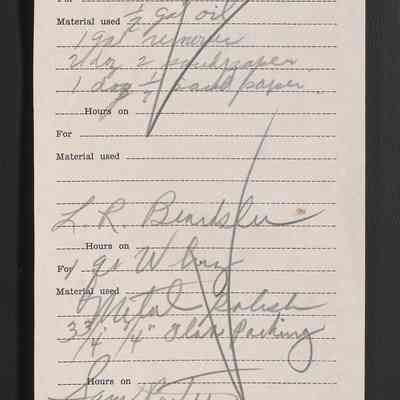 For
Material used ½ gal oil
1 gal remover
2 doz 2 sandpaper
1 doz ½ sand paper
Hours on
For
Material used
L. R. Beardslee
Hours on
For 1 ga W
Material used
Metal Polish
33/4 1/4" Flax Packing
Hours on
Sam